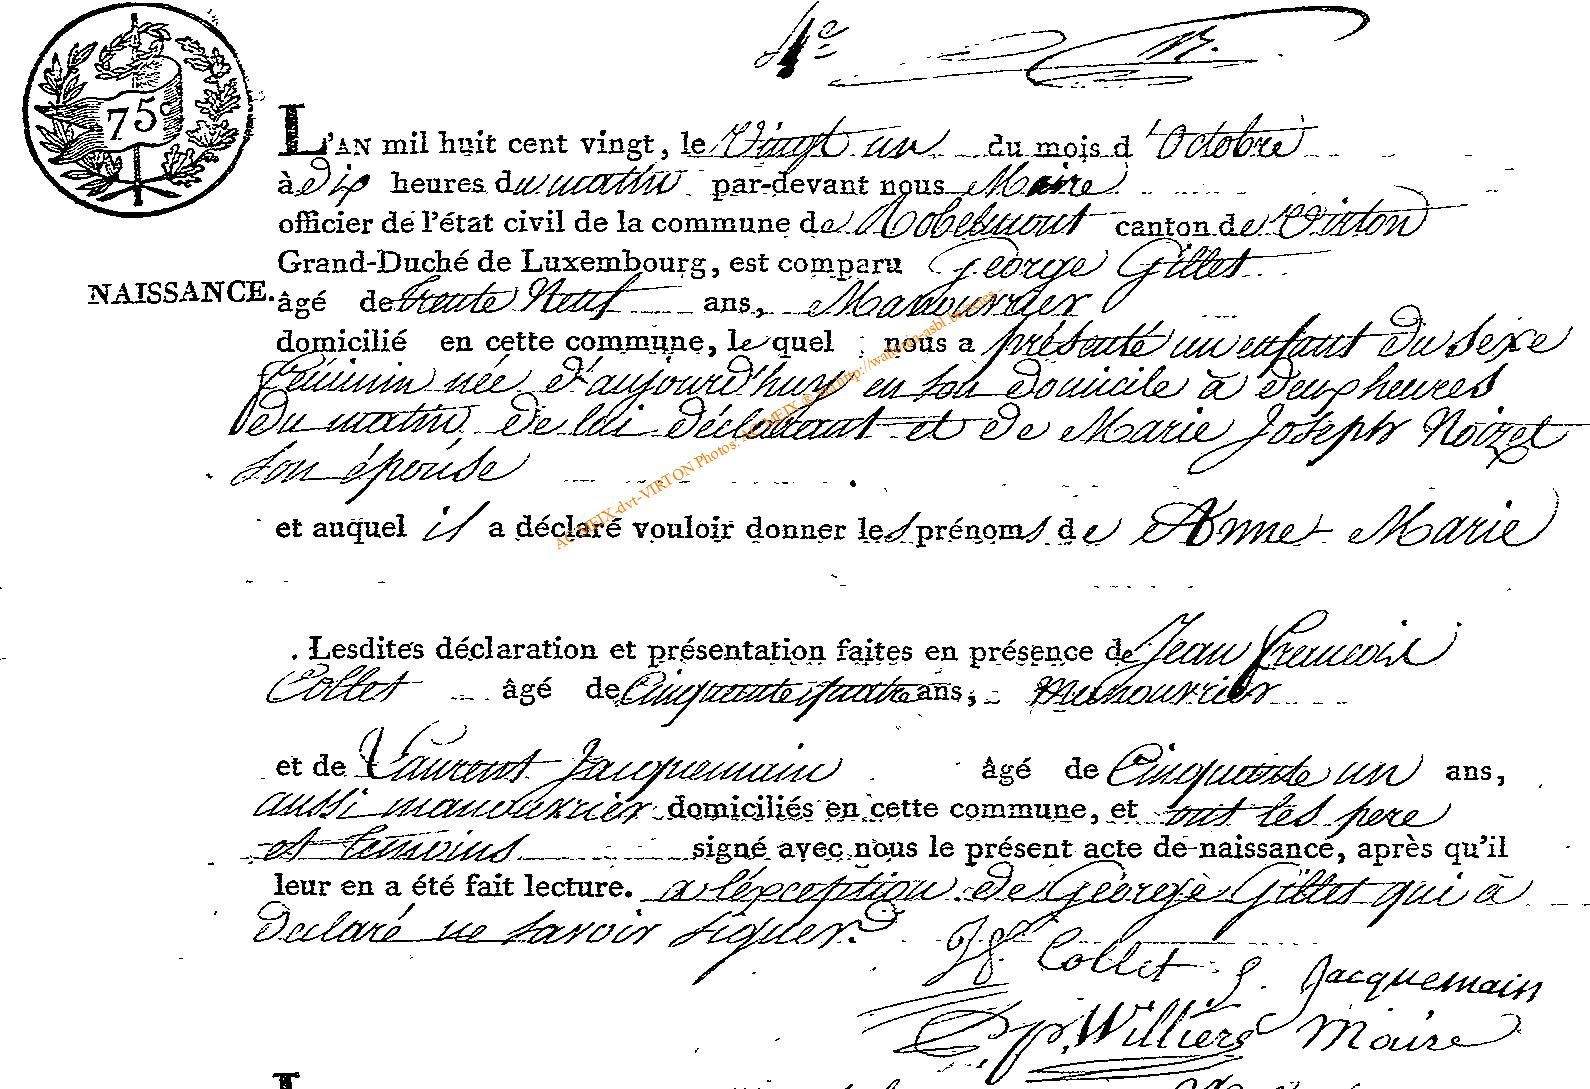 75c
4e
L'AN mil huit cent vingt, le Vingt un du mois d'Octobre
à Dix heures du matin par-devant nous Maire
officier de l'état civil de la commune de Robelmont canton de Virton
Grand-Duché de Luxembourg, est comparu George Gillet
NAISSANCE. âgé de trente Neuf ans, Manouvrier
domicilié en cette commune, lequel nous a présenté un enfant du sexe
féminin née d'aujourd'huy en son domicile à deux heures
du matin, de lui déclarant et de Marie Joseph Noizet
son épouse
et auquel il a déclaré vouloir donner les prénoms de Anne Marie
Lesdites déclaration et présentation faites en présence de Jean François
Collet âgé de Cinquante quatre ans, manouvrier
et de Laurent Jacquemain âgé de Cinquante un ans,
aussi manouvrier domiciliés en cette commune, et ont les pere
et temoins signé avec nous le présent acte de naissance, après qu'il
leur en a été fait lecture. a l'exception de George Gillet qui à
declaré ne savoir signer.
Jf. Collet L. Jacquemain
Willièrs Maire